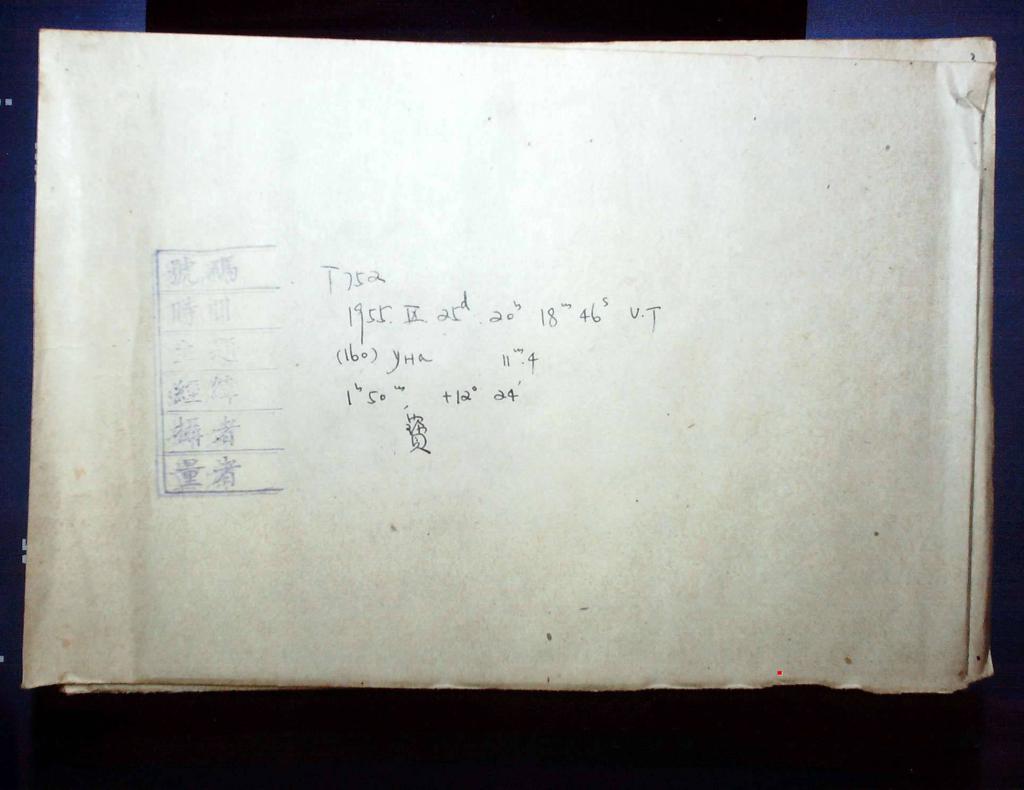 號碼
時間
主題
經緯
攝者
量者
T752
1955. IX. 25d. 20h 18m 46s U.T
(160) Una 11m.4
1h 50m, +12° 24'